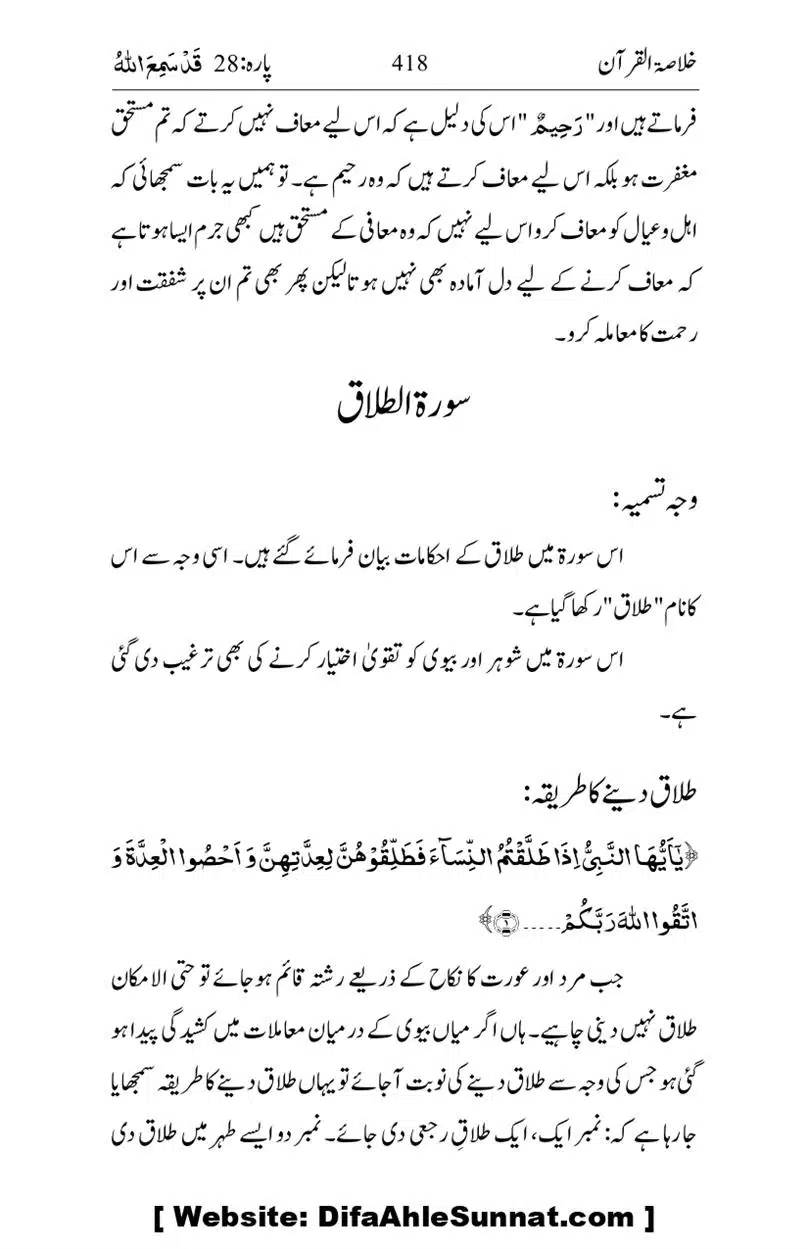 خلاصۃ القرآن 418 پارہ:28 قَدْ سَمِعَ اللّٰہُ
فرماتے ہیں اور "رَحِیمٌ" اس کی دلیل ہے کہ اس لیے معاف نہیں کرتے کہ تم مستحق
مغفرت ہو بلکہ اس لیے معاف کرتے ہیں کہ وہ رحیم ہے۔ تو ہمیں یہ بات سمجھائی کہ
اہل وعیال کو معاف کرو اس لیے نہیں کہ وہ معافی کے مستحق ہیں کبھی جرم ایسا ہوتا ہے
کہ معاف کرنے کے لیے دل آمادہ بھی نہیں ہوتا لیکن پھر بھی تم ان پر شفقت اور
رحمت کا معاملہ کرو۔
سورۃ الطلاق
وجہ تسمیہ:
اس سورۃ میں طلاق کے احکامات بیان فرمائے گئے ہیں۔ اسی وجہ سے اس
کا نام "طلاق" رکھا گیا ہے۔
اس سورۃ میں شوہر اور بیوی کو تقویٰ اختیار کرنے کی بھی ترغیب دی گئی
ہے۔
طلاق دینے کا طریقہ:
﴿یٰۤاَیُّهَا النَّبِیُّ اِذَا طَلَّقْتُمُ النِّسَآءَ فَطَلِّقُوْهُنَّ لِعِدَّتِهِنَّ وَ اَحْصُوا الْعِدَّةَ وَ
اتَّقُوا اللّٰهَ رَبَّكُمْ.....﴿۱﴾﴾
جب مرد اور عورت کا نکاح کے ذریعے رشتہ قائم ہو جائے تو حتی الامکان
طلاق نہیں دینی چاہیے۔ ہاں اگر میاں بیوی کے درمیان معاملات میں کشیدگی پیدا ہو
گئی ہو جس کی وجہ سے طلاق دینے کی نوبت آجائے تو یہاں طلاق دینے کا طریقہ سمجھایا
جا رہا ہے کہ: نمبر ایک، ایک طلاقِ رجعی دی جائے۔ نمبر دو ایسے طہر میں طلاق دی
[ Website: DifaAhleSunnat.com ]